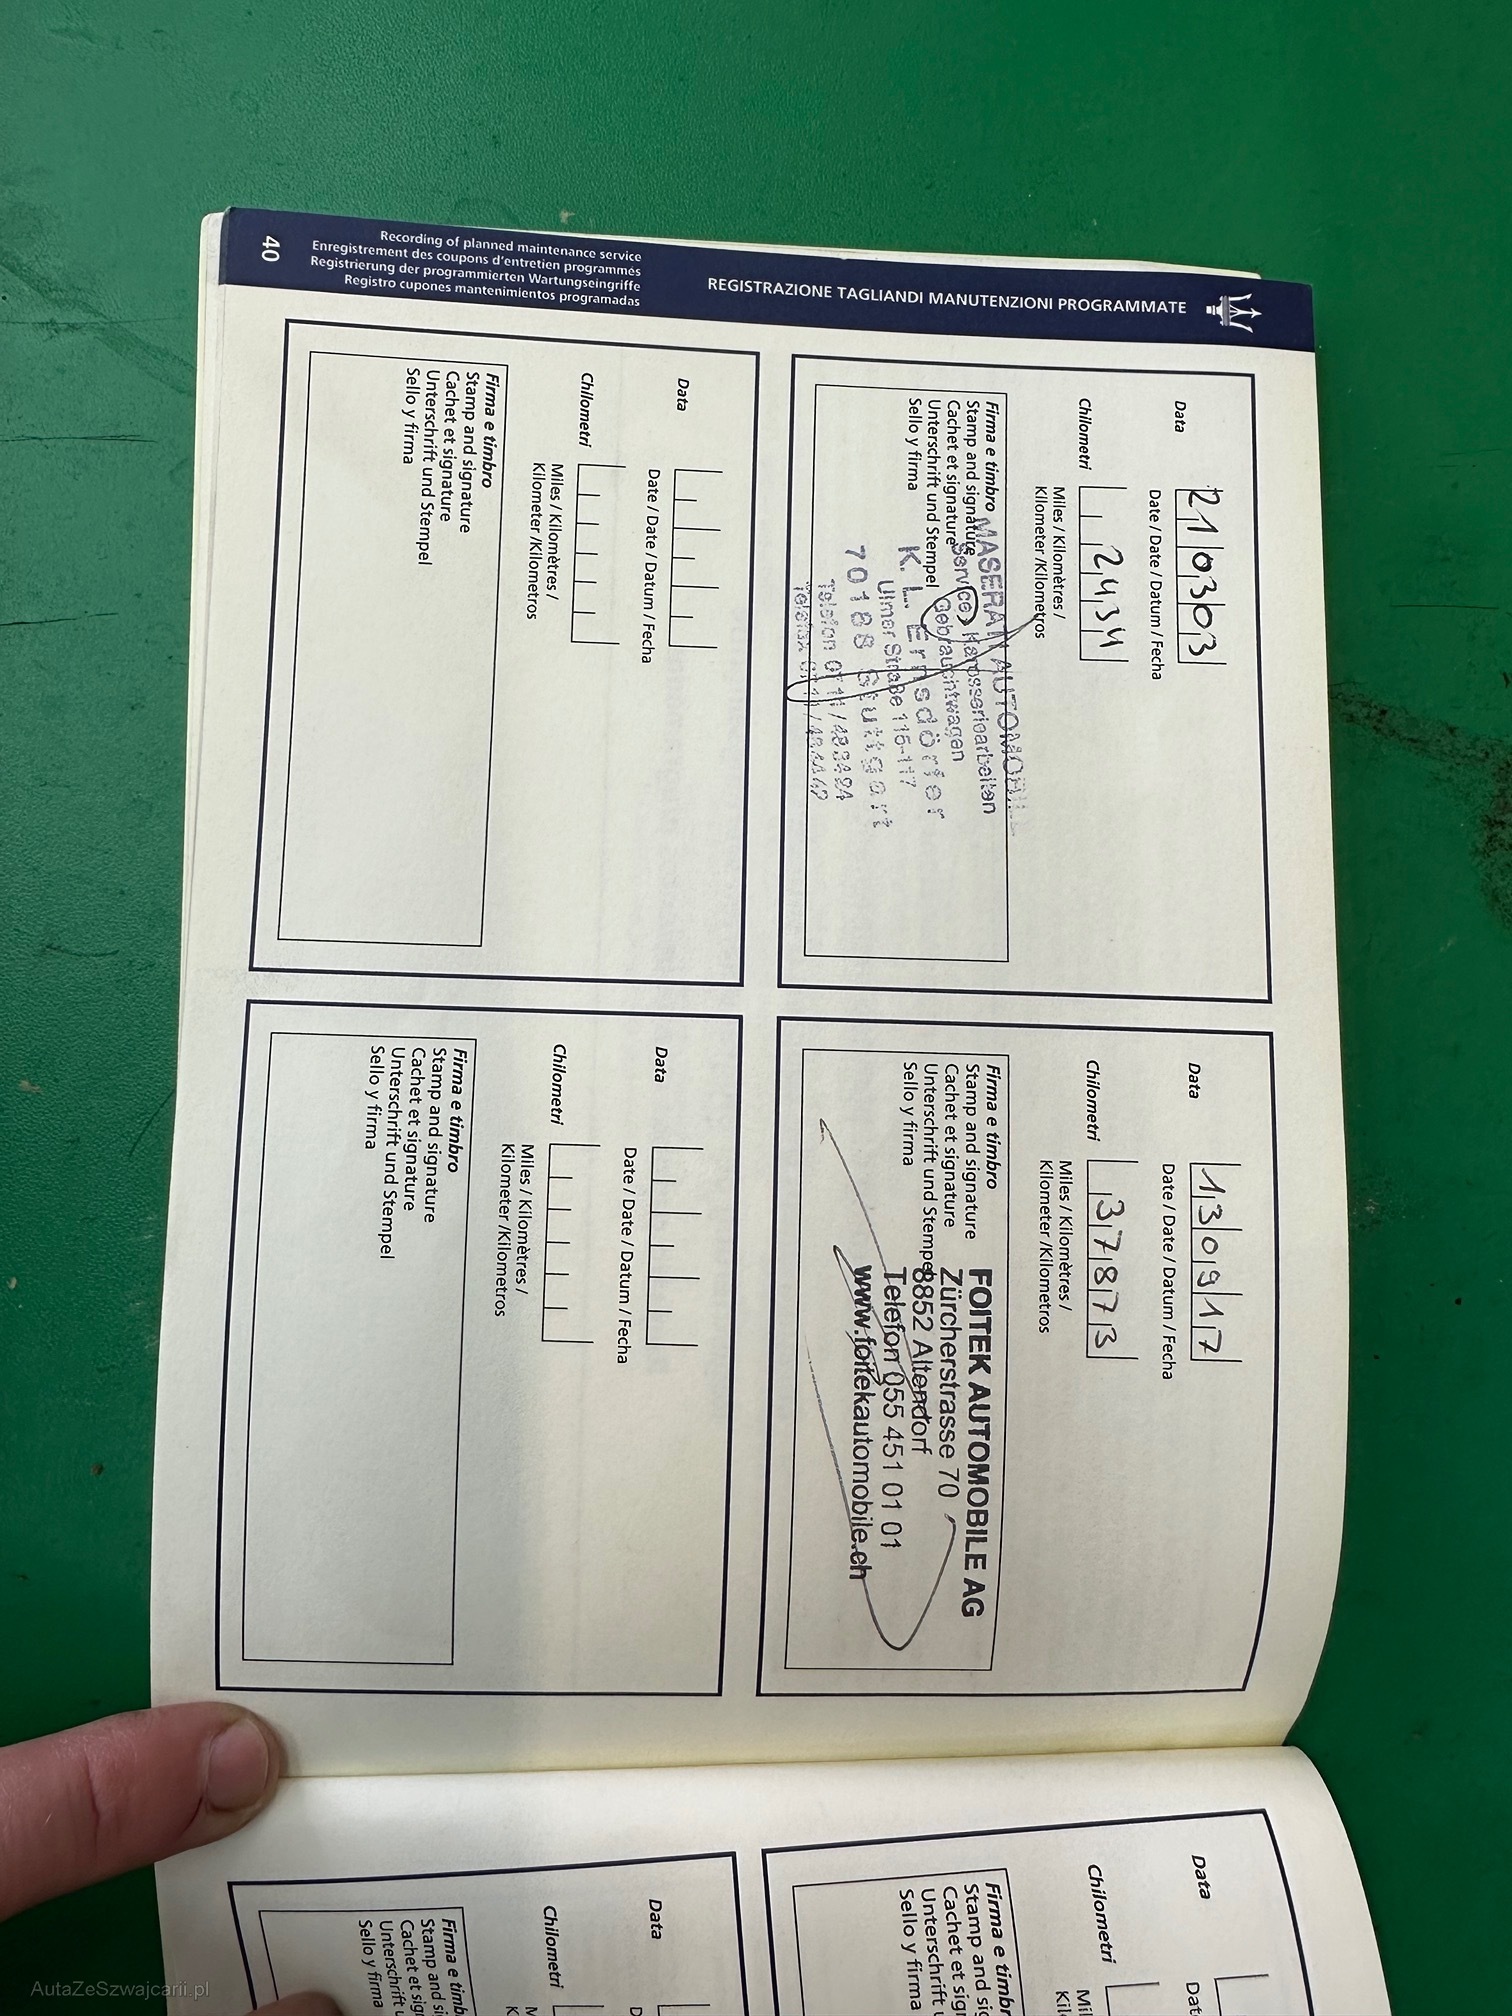 REGISTRAZIONE TAGLIANDI MANUTENZIONI PROGRAMMATE
Recording of planned maintenance service
Enregistrement des coupons d'entretien programmés
Registrierung der programmierten Wartungseingriffe
Registro cupones mantenimientos programadas
40
Data
210303
Date / Date / Datum / Fecha
Chilometri
2434
Miles / Kilomètres /
Kilometer /Kilometros
Firma e timbro
Stamp and signature
Cachet et signature
Unterschrift und Stempel
Sello y firma
MASERATI AUTOMOBILE
Service, Karosseriearbeiten
Gebrauchtwagen
K. L. Ernsdörfer
Ulmer Straße 115-117
70188 Stuttgart
Telefon 0711/
Telefax 0711/
Data
130917
Date / Date / Datum / Fecha
Chilometri
37873
Miles / Kilomètres /
Kilometer /Kilometros
Firma e timbro
Stamp and signature
Cachet et signature
Unterschrift und Stempel
Sello y firma
FOITEK AUTOMOBILE AG
Zürcherstrasse 70
8852 Altendorf
Telefon 055 451 01 01
www.foitekautomobile.ch
Data
Date / Date / Datum / Fecha
Chilometri
Miles / Kilomètres /
Kilometer /Kilometros
Firma e timbro
Stamp and signature
Cachet et signature
Unterschrift und Stempel
Sello y firma
Data
Date / Date / Datum / Fecha
Chilometri
Miles / Kilomètres /
Kilometer /Kilometros
Firma e timbro
Stamp and signature
Cachet et signature
Unterschrift und Stempel
Sello y firma
Data
Dat
Chilometri
Mil
Kil
Firma e timbro
Stamp and sig
Cachet et sign
Unterschrift
Sello y firma
Data
D
Chilometri
M
K
Firma e timb
Stamp and si
Cachet et sig
Unterschrift u
Sello y firma
AutaZeSzwajcarii.pl